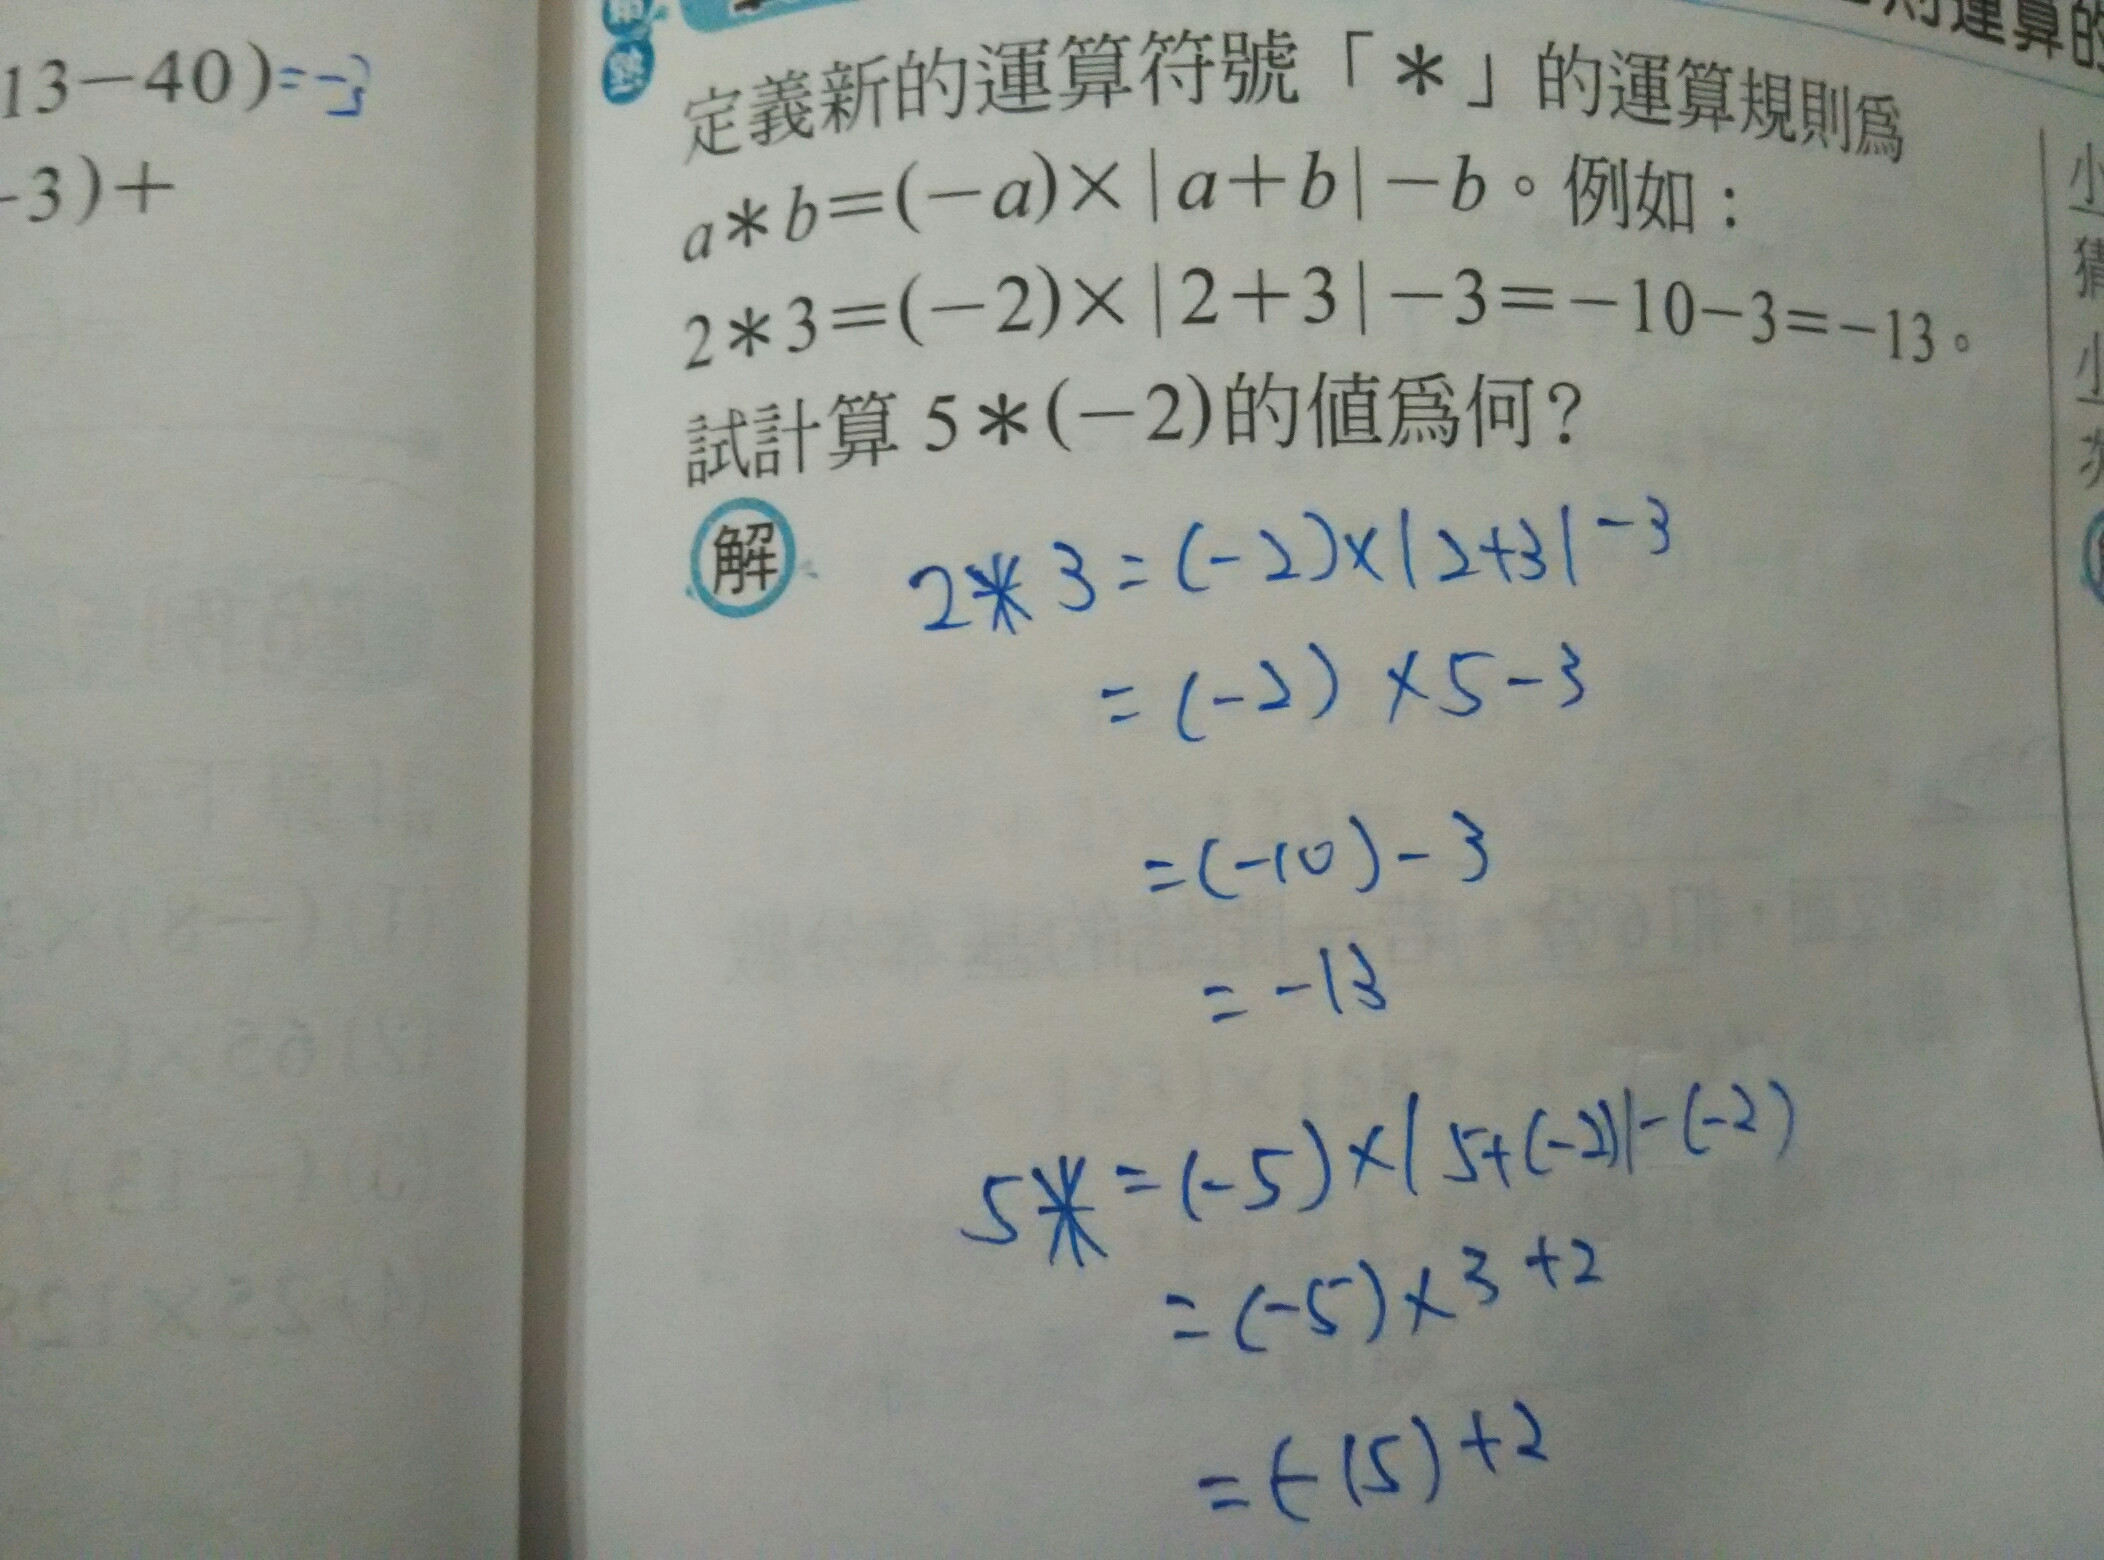 13－40)=-3
-3)＋
則運算的
定義新的運算符號「＊」的運算規則為
a＊b＝(－a)×|a＋b|－b。例如：
2＊3＝(－2)×|2＋3|－3＝－10－3＝－13。
試計算 5＊(－2)的值為何？
解
2＊3=(-2)×|2+3|-3
=(-2)×5-3
=(-10)-3
=-13
5＊=(-5)×|5+(-2)|-(-2)
=(-5)×3+2
=(-15)+2
小
猜
小